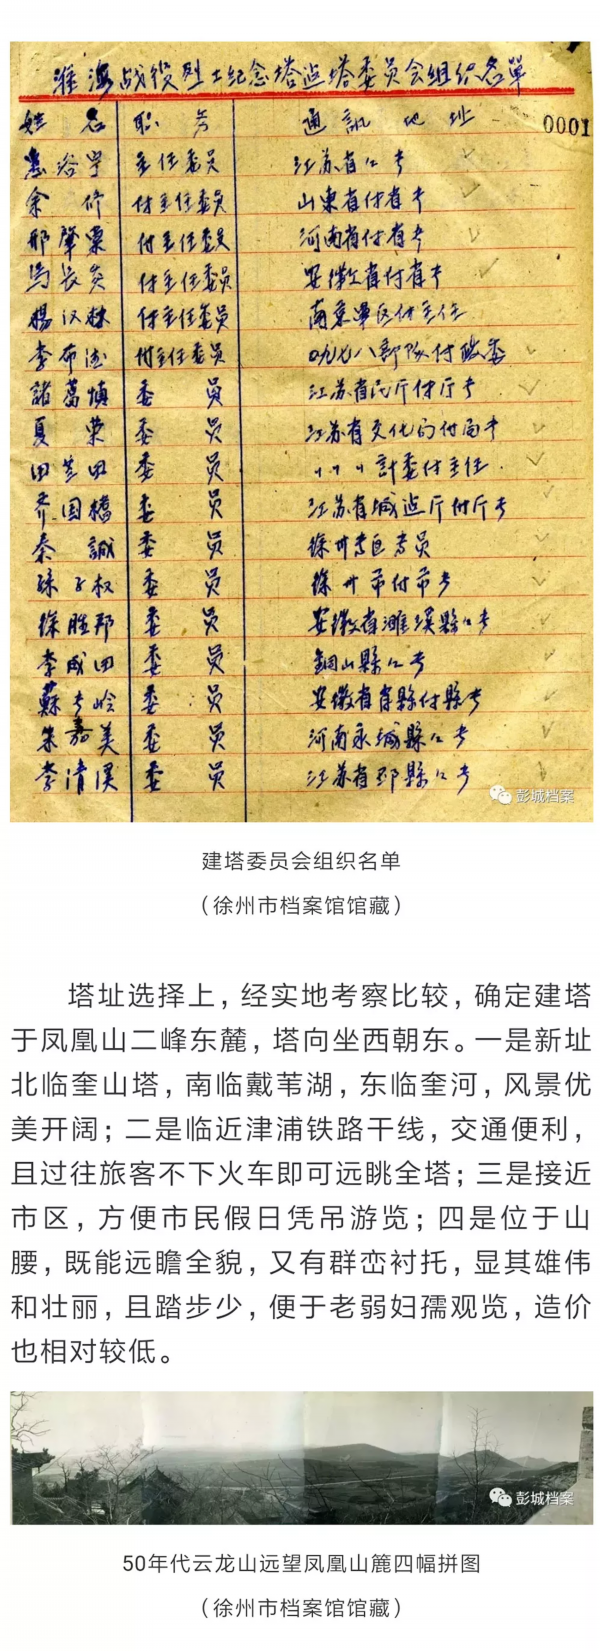 淮海战役烈士纪念塔建塔委员会组织名單
姓名 职务 通訊地址 0001
惠浴宇 主任委員 江苏省省长
余修 付主任委員 山東省付省长
邢肇棠 付主任委員 河南省付省长
馬長炎 付主任委員 安徽省付省长
楊汉林 付主任委員 南京軍区付主任
李布德 付主任委員 付政委
諸葛慎 委員 江苏省民厅付厅长
夏荣 委員 江苏省文化局付局长
田芝田 委員 〃〃〃計委付主任
齐国橋 委員 江苏省城建厅付厅长
秦誠 委員 徐州专区专员
孫子权 委員 徐州市付市长
徐胜邦 委員 安徽省濉溪縣县长
李成田 委員 銅山縣县长
蘇岭 委員 安徽省縣付縣长
朱嘉美 委員 河南永城縣县长
李清溪 委員 江苏省邳縣县长
彭城档案
建塔委员会组织名单
（徐州市档案馆馆藏）
塔址选择上，经实地考察比较，确定建塔
于凤凰山二峰东麓，塔向坐西朝东。一是新址
北临奎山塔，南临戴苇湖，东临奎河，风景优
美开阔；二是临近津浦铁路干线，交通便利，
且过往旅客不下火车即可远眺全塔；三是接近
市区，方便市民假日凭吊游览；四是位于山
腰，既能远瞻全貌，又有群峦衬托，显其雄伟
和壮丽，且踏步少，便于老弱妇孺观览，造价
也相对较低。
彭城档案
50年代云龙山远望凤凰山麓四幅拼图
（徐州市档案馆馆藏）